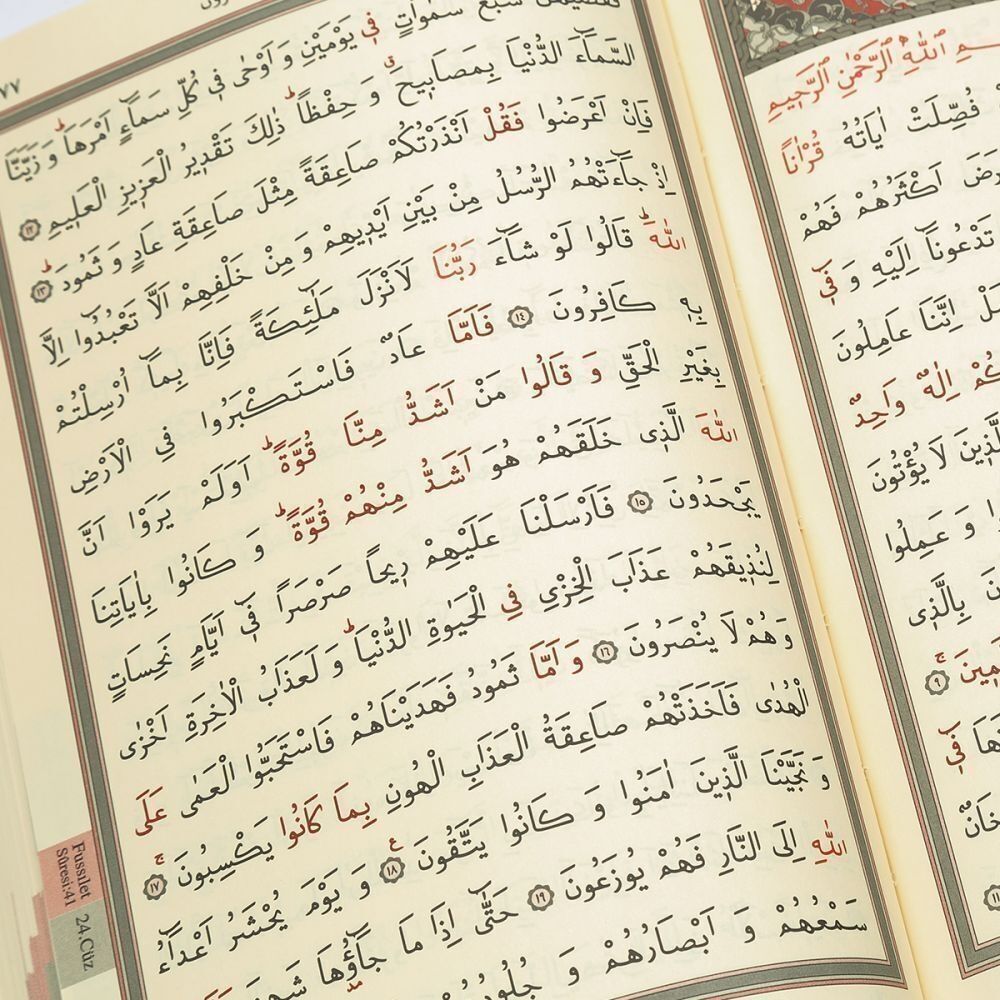 سَمٰوَاتٍ فٖي يَوْمَيْنِ وَ اَوْحٰى فٖي كُلِّ سَمَٓاءٍ اَمْرَهَاؕ وَ زَيَّنَّا
السَّمَٓاءَ الدُّنْيَا بِمَصَابٖيحَۗ وَ حِفْظاًؕ ذٰلِكَ تَقْدٖيرُ الْعَزٖيزِ الْعَلٖيمِ ﴿١٢﴾
فَاِنْ اَعْرَضُوا فَقُلْ اَنْذَرْتُكُمْ صَاعِقَةً مِثْلَ صَاعِقَةِ عَادٍ وَ ثَمُودَؕ ﴿١٣﴾
اِذْ جَٓاءَتْهُمُ الرُّسُلُ مِنْ بَيْنِ اَيْدٖيهِمْ وَ مِنْ خَلْفِهِمْ اَلَّا تَعْبُدُٓوا اِلَّا
اللّٰهَؕ قَالُوا لَوْ شَٓاءَ رَبُّنَا لَاَنْزَلَ مَلٰٓئِكَةً فَاِنَّا بِمَٓا اُرْسِلْتُمْ
بِهٖ كَافِرُونَ ﴿١٤﴾ فَاَمَّا عَادٌ فَاسْتَكْبَرُوا فِي الْاَرْضِ
بِغَيْرِ الْحَقِّ وَ قَالُوا مَنْ اَشَدُّ مِنَّا قُوَّةًؕ اَوَلَمْ يَرَوْا اَنَّ
اللّٰهَ الَّذٖي خَلَقَهُمْ هُوَ اَشَدُّ مِنْهُمْ قُوَّةًؕ وَ كَانُوا بِاٰيَاتِنَا
يَجْحَدُونَ ﴿١٥﴾ فَاَرْسَلْنَا عَلَيْهِمْ رٖيحاً صَرْصَراً فٖٓي اَيَّامٍ نَحِسَاتٍ
لِنُذٖيقَهُمْ عَذَابَ الْخِزْيِ فِي الْحَيٰوةِ الدُّنْيَاؕ وَ لَعَذَابُ الْاٰخِرَةِ اَخْزٰى
وَ هُمْ لَا يُنْصَرُونَ ﴿١٦﴾ وَ اَمَّا ثَمُودُ فَهَدَيْنَاهُمْ فَاسْتَحَبُّوا الْعَمٰى عَلَى
الْهُدٰى فَاَخَذَتْهُمْ صَاعِقَةُ الْعَذَابِ الْهُونِ بِمَا كَانُوا يَكْسِبُونَۚ ﴿١٧﴾
وَ نَجَّيْنَا الَّذٖينَ اٰمَنُوا وَ كَانُوا يَتَّقُونَ ﴿١٨﴾ وَ يَوْمَ يُحْشَرُ اَعْدَٓاءُ
اللّٰهِ اِلَى النَّارِ فَهُمْ يُوزَعُونَ ﴿١٩﴾ حَتّٰٓى اِذَا مَا جَٓاؤُ۫هَا
سَمْعُهُمْ وَ اَبْصَارُهُمْ وَ
Fussılet
Sûresi:41
24.Cüz
اللّٰهِ الرَّحْمٰنِ الرَّحٖيمِ
فُصِّلَتْ اٰيَاتُهُ قُرْاٰناً
اَكْثَرُهُمْ فَهُمْ
تَدْعُونَٓا اِلَيْهِ وَ فٖٓي
اِنَّنَا عَامِلُونَ
اِلٰهٌ وَاحِدٌ
لَا يُؤْتُونَ
وَ عَمِلُوا
بِالَّذٖي
﴿٩﴾
فٖي